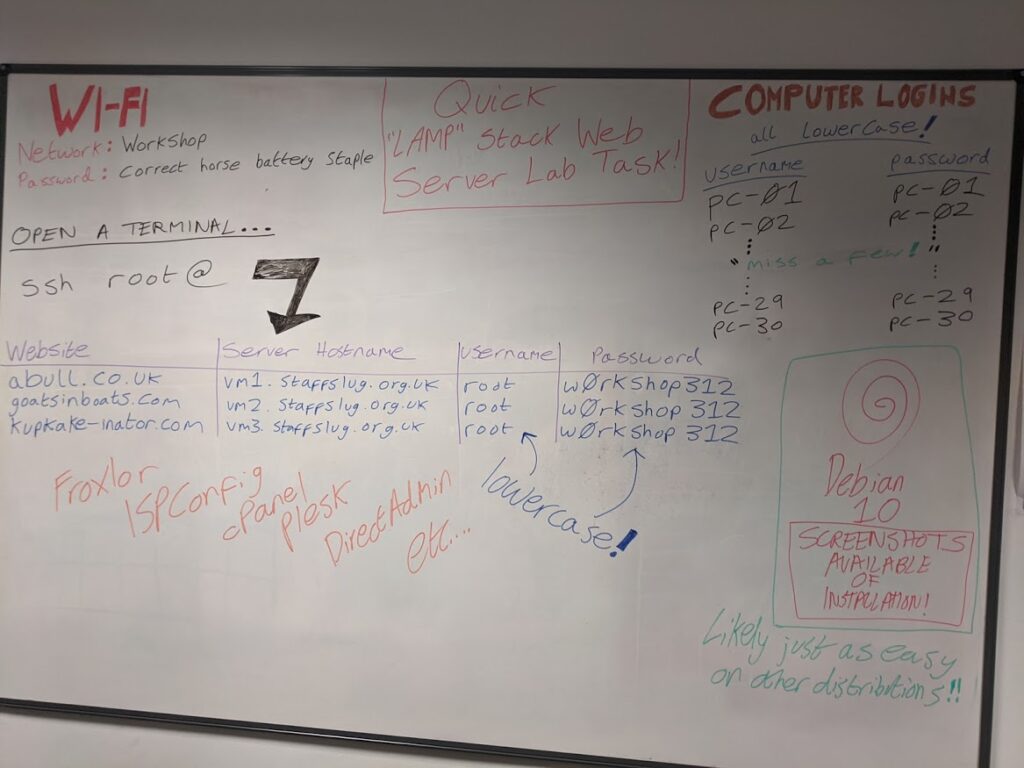 WI-FI
Network: Workshop
Password: Correct horse battery staple
Quick
"LAMP" Stack Web
Server Lab Task!
COMPUTER LOGINS
all lowercase!
username password
pc-01 pc-01
pc-02 pc-02
"miss a few!"
pc-29 pc-29
pc-30 pc-30
OPEN A TERMINAL...
ssh root@
Website Server Hostname username Password
abull.co.uk vm1.staffslug.org.uk root w0rkshop312
goatsinboats.com vm2.staffslug.org.uk root w0rkshop312
kupkake-inator.com vm3.staffslug.org.uk root w0rkshop312
lowercase!
Froxlor
ISPConfig
cPanel
Plesk
DirectAdmin
etc....
Debian
10
SCREENSHOTS
AVAILABLE
OF
INSTALLATION!
Likely just as easy
on other distributions!!